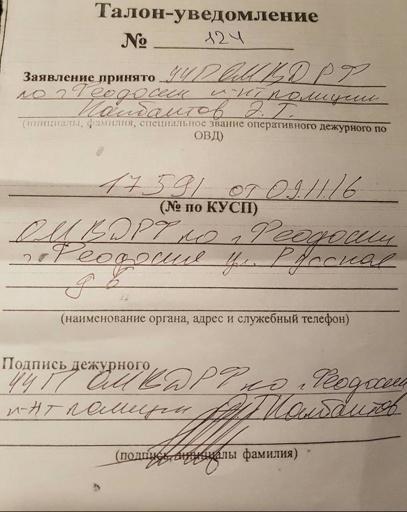 Талон-уведомление
№ 124
Заявление принято УУП ОМВДРФ
по г Феодосии л-нт полиции
Калбаитов Э. Т.
(инициалы, фамилия, специальное звание оперативного дежурного по
ОВД)
17591 от 09.11.16
(№ по КУСП)
ОМВДРФ по г Феодосии
г Феодосия ул. Русская
д 6
(наименование органа, адрес и служебный телефон)
Подпись дежурного
УУП ОМВДРФ по г Феодосии
л-нт полиции Э.Т Калбаитов
(подпись, инициалы фамилия)